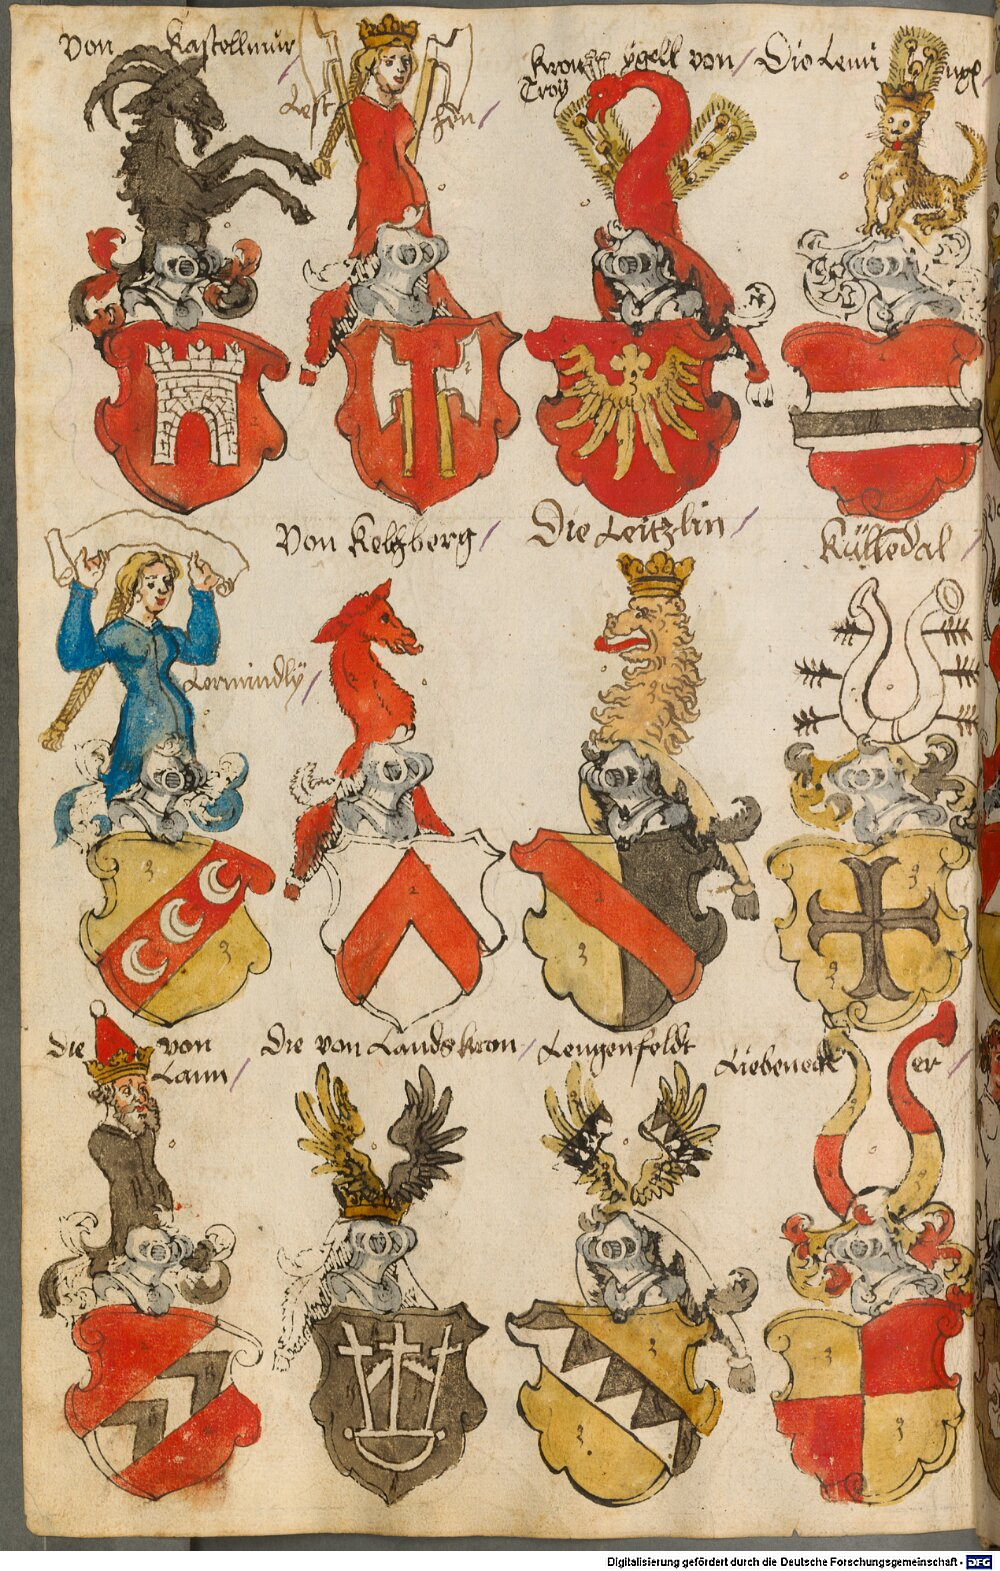 Von Kastellmur
Lest hen
Kron ygell von
Troy
Die Lemi
Von Kelhberg
Die Leitzlin
Külledal
Lermindly
Die von
Lann
Die von Landskron
Lengenfeldt
Liebeneck er
Digitalisierung gefördert durch die Deutsche Forschungsgemeinschaft - DFG